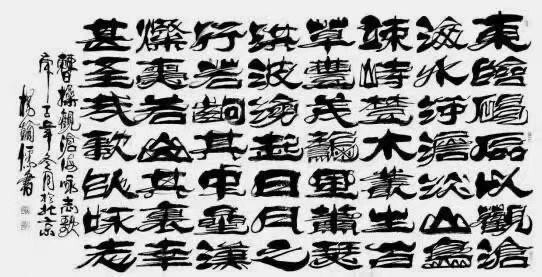 東臨碣石以觀滄
海水何澹淡山島
竦峙樹木叢生百
草豐茂秋風蕭瑟
洪波湧起日月之
行若出其中星漢
燦爛若出其裏幸
甚至哉歌以詠志
曹操觀滄海詠志歌
年冬月於北京
楊 書